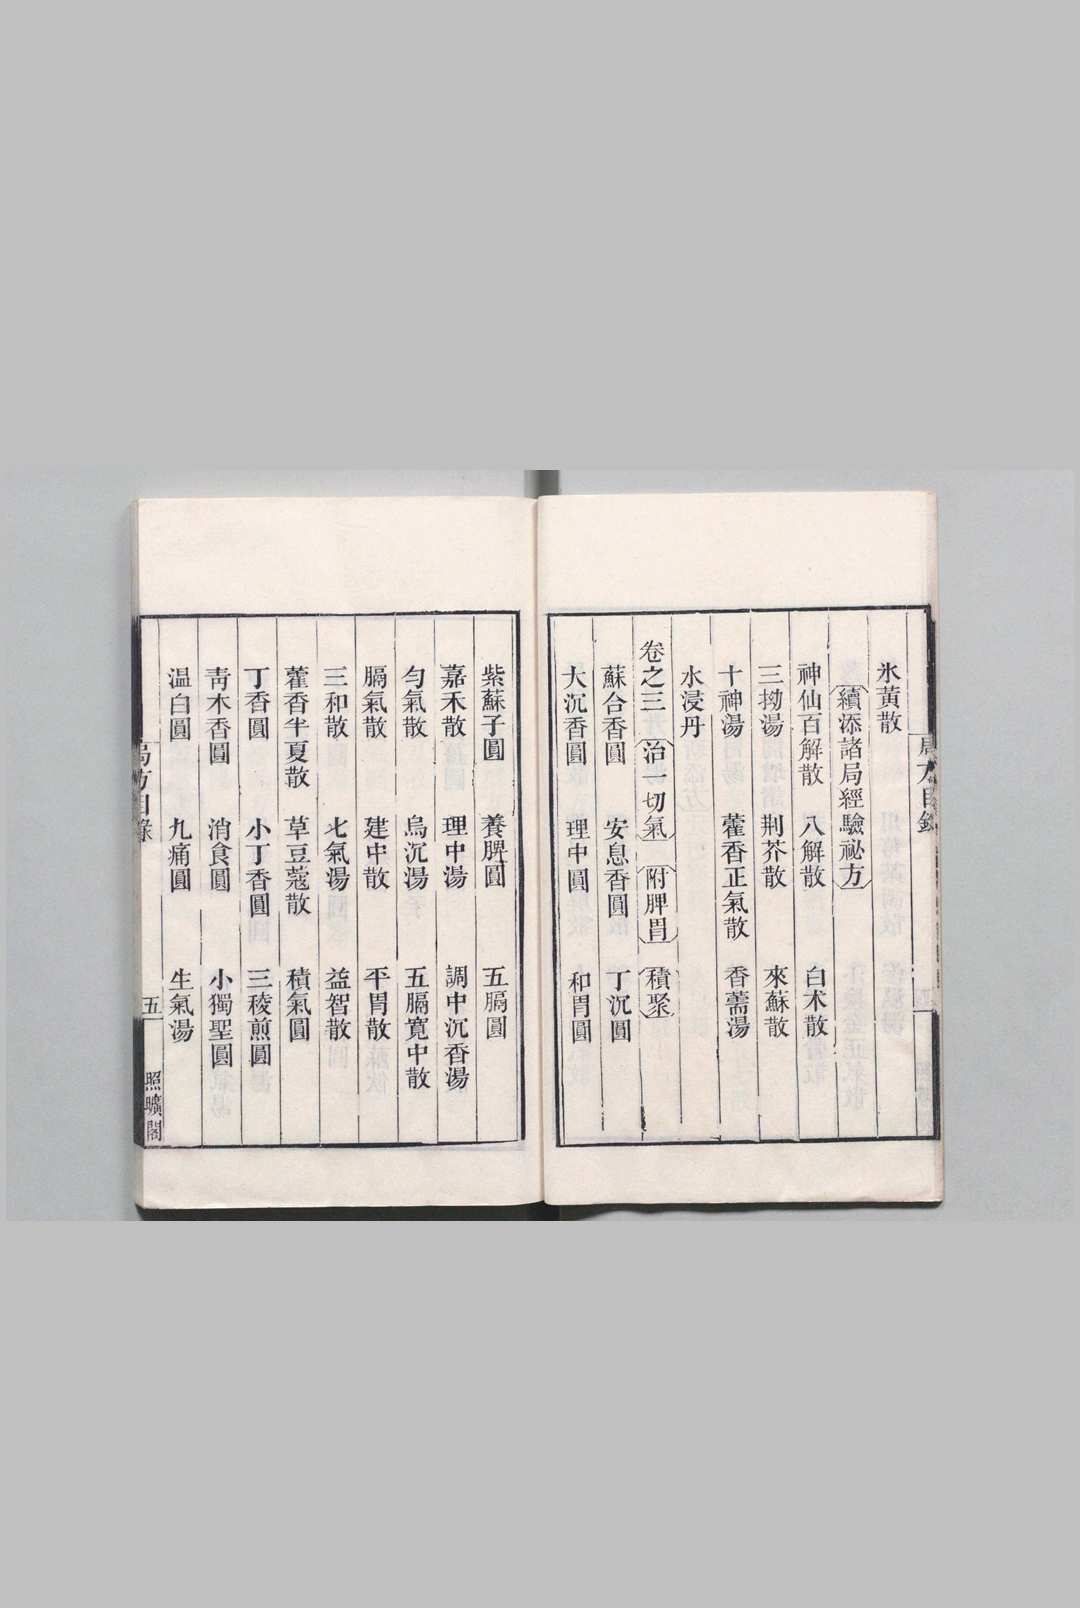 氷黃散
續添諸局經驗祕方
神仙百解散 八解散 白术散
三拗湯 荆芥散 來蘇散
十神湯 藿香正氣散 香薷湯
水浸丹
卷之三 治一切氣 附脾胃 積聚
蘇合香圓 安息香圓 丁沉圓
大沉香圓 理中圓 和胃圓
紫蘇子圓 養脾圓 五膈圓
嘉禾散 理中湯 調中沉香湯
匀氣散 烏沉湯 五膈寬中散
膈氣散 建中散 平胃散
三和散 七氣湯 益智散
藿香半夏散 草豆蔻散 積氣圓
丁香圓 小丁香圓 三稜煎圓
靑木香圓 消食圓 小獨聖圓
温白圓 九痛圓 生氣湯
局方目錄 五 照曠閣